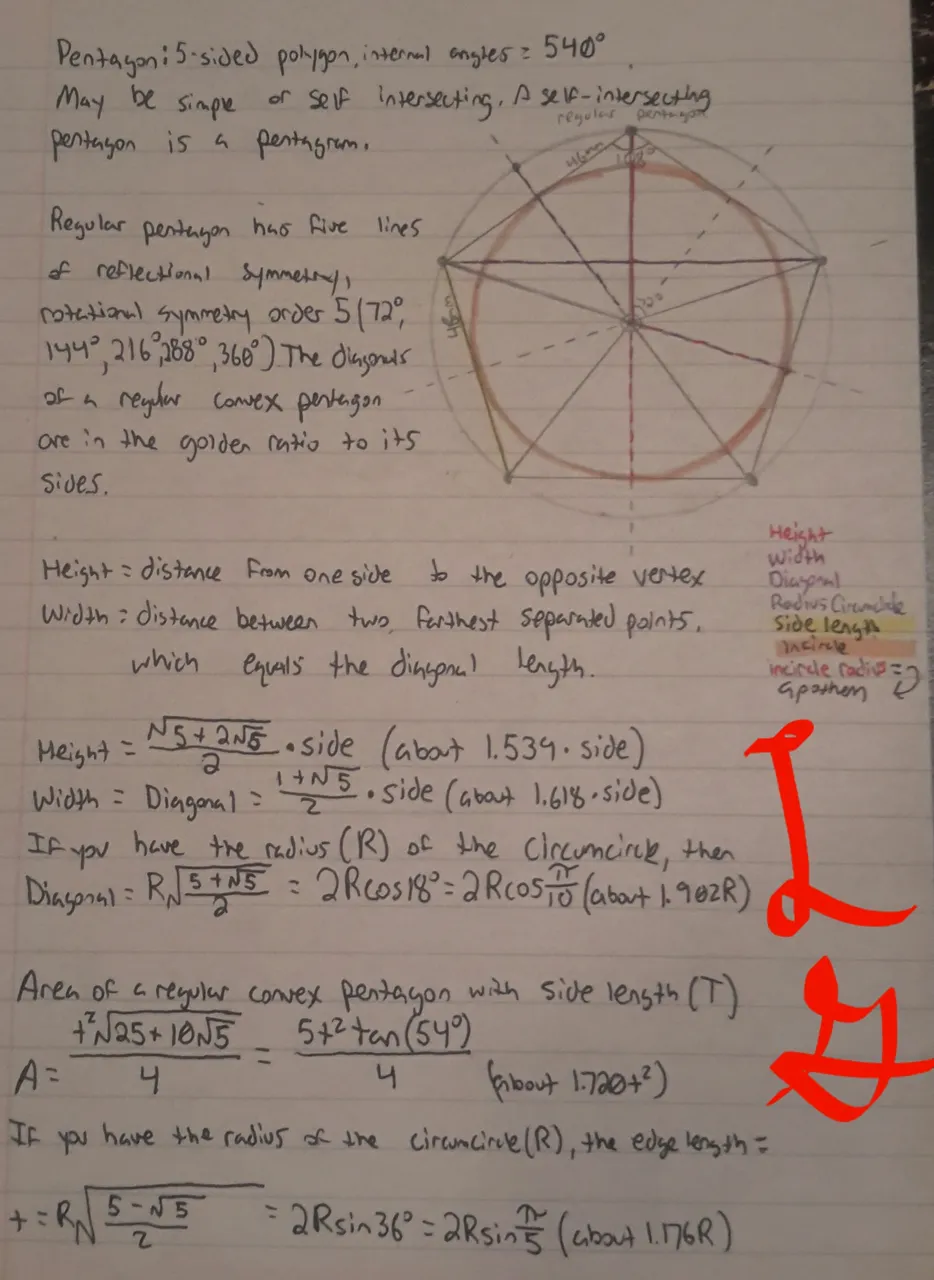 Pentagon: 5-sided polygon, internal angles = 540°
May be simple or self intersecting. A self-intersecting
pentagon is a pentagram.
regular pentagon
46mm
108°
Regular pentagon has five lines
of reflectional symmetry,
rotational symmetry order 5 (72°,
144°, 216°, 288°, 360°) The diagonals
of a regular convex pentagon
are in the golden ratio to its
sides.
46mm
72°
Height
Width
Diagonal
Radius Circumcircle
Side length
Incircle
incircle radius =
apothem
Height = distance from one side to the opposite vertex
Width = distance between two farthest separated points,
which equals the diagonal length.
Height = √(5+2√5)/2 · side (about 1.539 · side)
Width = Diagonal = (1+√5)/2 · side (about 1.618 · side)
If you have the radius (R) of the circumcircle, then
Diagonal = R√((5+√5)/2) = 2Rcos18° = 2Rcos π/10 (about 1.902R)
L
G
Area of a regular convex pentagon with side length (T)
A = t²√(25+10√5)/4 = 5t² tan(54°)/4 (about 1.720t²)
If you have the radius of the circumcircle (R), the edge length =
t = R√((5-√5)/2) = 2Rsin36° = 2Rsin π/5 (about 1.176R)